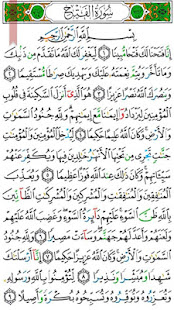 سُورَةُ الْفَتْحِ
بِسْمِ ٱللَّهِ ٱلرَّحْمَٰنِ ٱلرَّحِيمِ
إِنَّا فَتَحْنَا لَكَ فَتْحًا مُّبِينًا ١ لِّيَغْفِرَ لَكَ ٱللَّهُ مَا تَقَدَّمَ مِن ذَنۢبِكَ
وَمَا تَأَخَّرَ وَيُتِمَّ نِعْمَتَهُۥ عَلَيْكَ وَيَهْدِيَكَ صِرَٰطًا مُّسْتَقِيمًا ٢
وَيَنصُرَكَ ٱللَّهُ نَصْرًا عَزِيزًا ٣ هُوَ ٱلَّذِىٓ أَنزَلَ ٱلسَّكِينَةَ فِى قُلُوبِ
ٱلْمُؤْمِنِينَ لِيَزْدَادُوٓا۟ إِيمَٰنًا مَّعَ إِيمَٰنِهِمْ وَلِلَّهِ جُنُودُ ٱلسَّمَٰوَٰتِ
وَٱلْأَرْضِ وَكَانَ ٱللَّهُ عَلِيمًا حَكِيمًا ٤ لِّيُدْخِلَ ٱلْمُؤْمِنِينَ وَٱلْمُؤْمِنَٰتِ
جَنَّٰتٍ تَجْرِى مِن تَحْتِهَا ٱلْأَنْهَٰرُ خَٰلِدِينَ فِيهَا وَيُكَفِّرَ عَنْهُمْ
سَيِّـَٔاتِهِمْ وَكَانَ ذَٰلِكَ عِندَ ٱللَّهِ فَوْزًا عَظِيمًا ٥ وَيُعَذِّبَ
ٱلْمُنَٰفِقِينَ وَٱلْمُنَٰفِقَٰتِ وَٱلْمُشْرِكِينَ وَٱلْمُشْرِكَٰتِ ٱلظَّآنِّينَ
بِٱللَّهِ ظَنَّ ٱلسَّوْءِ عَلَيْهِمْ دَآئِرَةُ ٱلسَّوْءِ وَغَضِبَ ٱللَّهُ عَلَيْهِمْ
وَلَعَنَهُمْ وَأَعَدَّ لَهُمْ جَهَنَّمَ وَسَآءَتْ مَصِيرًا ٦ وَلِلَّهِ جُنُودُ ٱلسَّمَٰوَٰتِ
وَٱلْأَرْضِ وَكَانَ ٱللَّهُ عَزِيزًا حَكِيمًا ٧ إِنَّآ أَرْسَلْنَٰكَ
شَٰهِدًا وَمُبَشِّرًا وَنَذِيرًا ٨ لِّتُؤْمِنُوا۟ بِٱللَّهِ وَرَسُولِهِۦ
وَتُعَزِّرُوهُ وَتُوَقِّرُوهُ وَتُسَبِّحُوهُ بُكْرَةً وَأَصِيلًا ٩